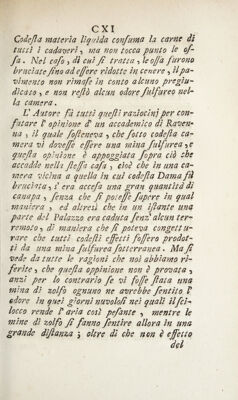 CXI
Codesta materia liquida consuma la carne di
tutti i cadaveri, ma non tocca punto le os-
sa. Nel caso, di cui si tratta, le ossa furono
bruciate fino ad essere ridotte in cenere, il pa-
vimento non rimase in conto alcuno pregiu-
dicato, e non restò alcun odore sulfureo nel-
la camera.
L' Autore fà tutti questi raziocinj per con-
futare l' opinione d' un accademico di Raven-
na, il quale sosteneva, che sotto codesta ca-
mera vi dovesse essere una mina sulfurea, e
questa opinione è appoggiata sopra ciò che
accadde nello stesso caso, cioè che in una ca-
mera vicina a quella in cui codesta Dama fù
bruciata, s' era accesa una gran quantità di
canapa, senza che si potesse sapere in qual
maniera, ed altresì che in un istante una
parte del Palazzo era caduta senz' alcun ter-
remoto, di maniera che si poteva congettu-
rare che tutti codesti effetti fossero prodot-
ti da una mina sulfurea sotterranea. Ma si
vede da tutte le ragioni che noi abbiamo ri-
ferite, che questa oppinione non è provata,
anzi per lo contrario se vi fosse stata una
mina di zolfo ognuno ne avrebbe sentito l'
odore in quei giorni nuvolosi nei quali il sci-
locco rende l' aria così pesante, mentre le
mine di zolfo si fanno sentire allora in una
grande distanza; oltre di che non è effetto
del